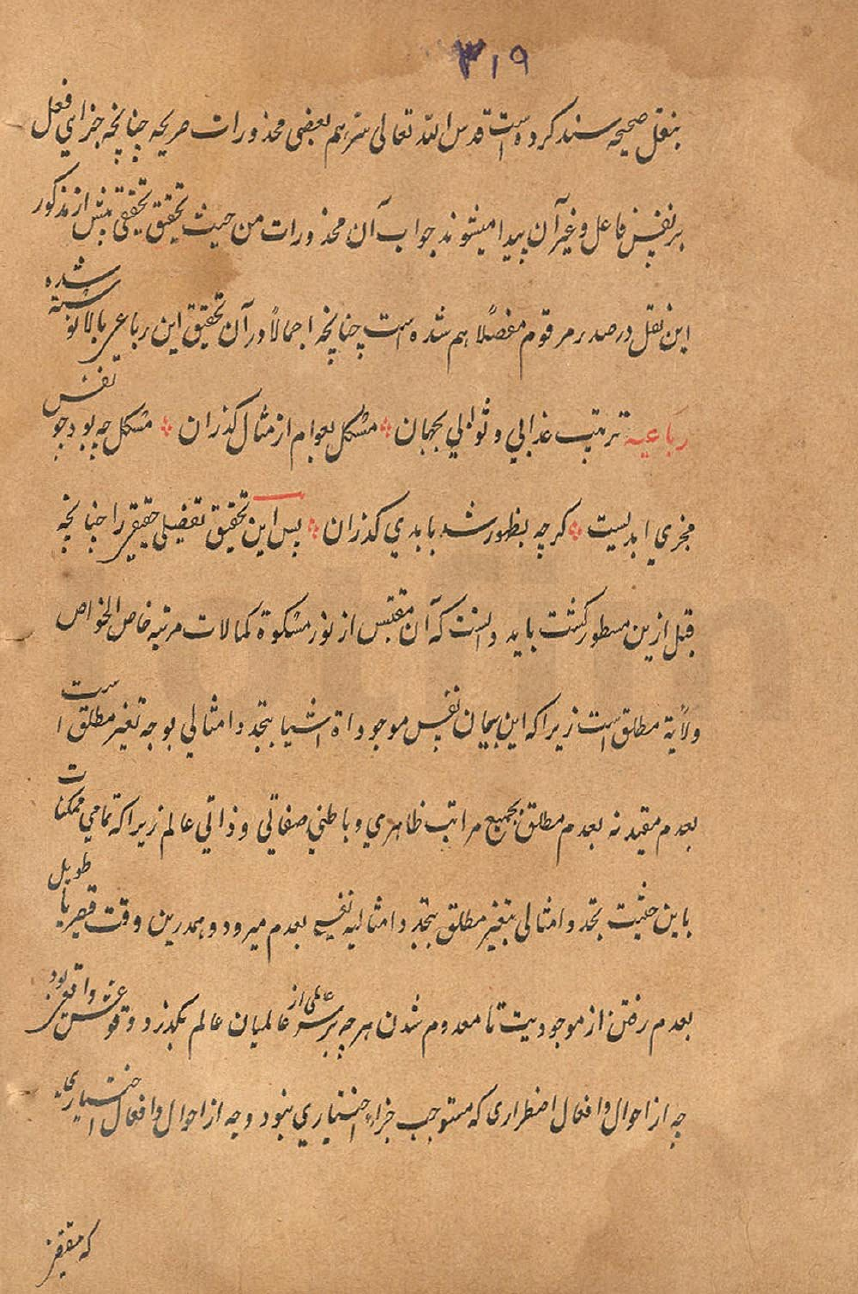 ۳۱۹
بنقل صحیحه سند کرده است قدس الله تعالی سرهم بعضی محذورات صریحه چنانچه جزای فعل
بر نفس فاعل و غیر آن پیدا میشوند جواب آن محذورات من حیث تحقیق تحقیقی پیش از مذکور
این نقل در صدر مرقوم مفصلاً هم شده است چنانچه اجمالاً در آن تحقیق این رباعی بالا نوشته شده
رباعیه ترتب عذابی و ثوابی بجهان * مشکل بعوام از مثال گذران * مشکل چه بود چو نفس
مجزی ابدیست * گر چه بظور شد بابدی گذران * پس این تحقیق تفصیلی حقیقی را چنانچه
قبل ازین مسطور گشت باید دانست که آن مقتبس از نور مشکوة کمالات مرتبه خاص الخواص
ولایة مطلق است زیرا که این نفس موجوداة اشیا بتجدد امثالی بوجه تغیر مطلق است
بعدم مقید نه بعدم مطلق بجمیع مراتب ظاهری و باطنی صفاتی و ذاتی عالم زیرا که تمامی ممکنات
باین حیثیت تجدد امثالی بتغیر مطلق بتجدد امثالیه بعدم میرود و همدرین وقت قصیر یا طویل
بعدم رفتن از موجودیت تا معدوم شدن هر چه بر سر عاملی از عالمیان عالم بگذرد وقوعش واقعی بود
چه از احوال و افعال اضطراری که مستوجب جزاء اختیاری نبود و چه از احوال و افعال اختیاری
که